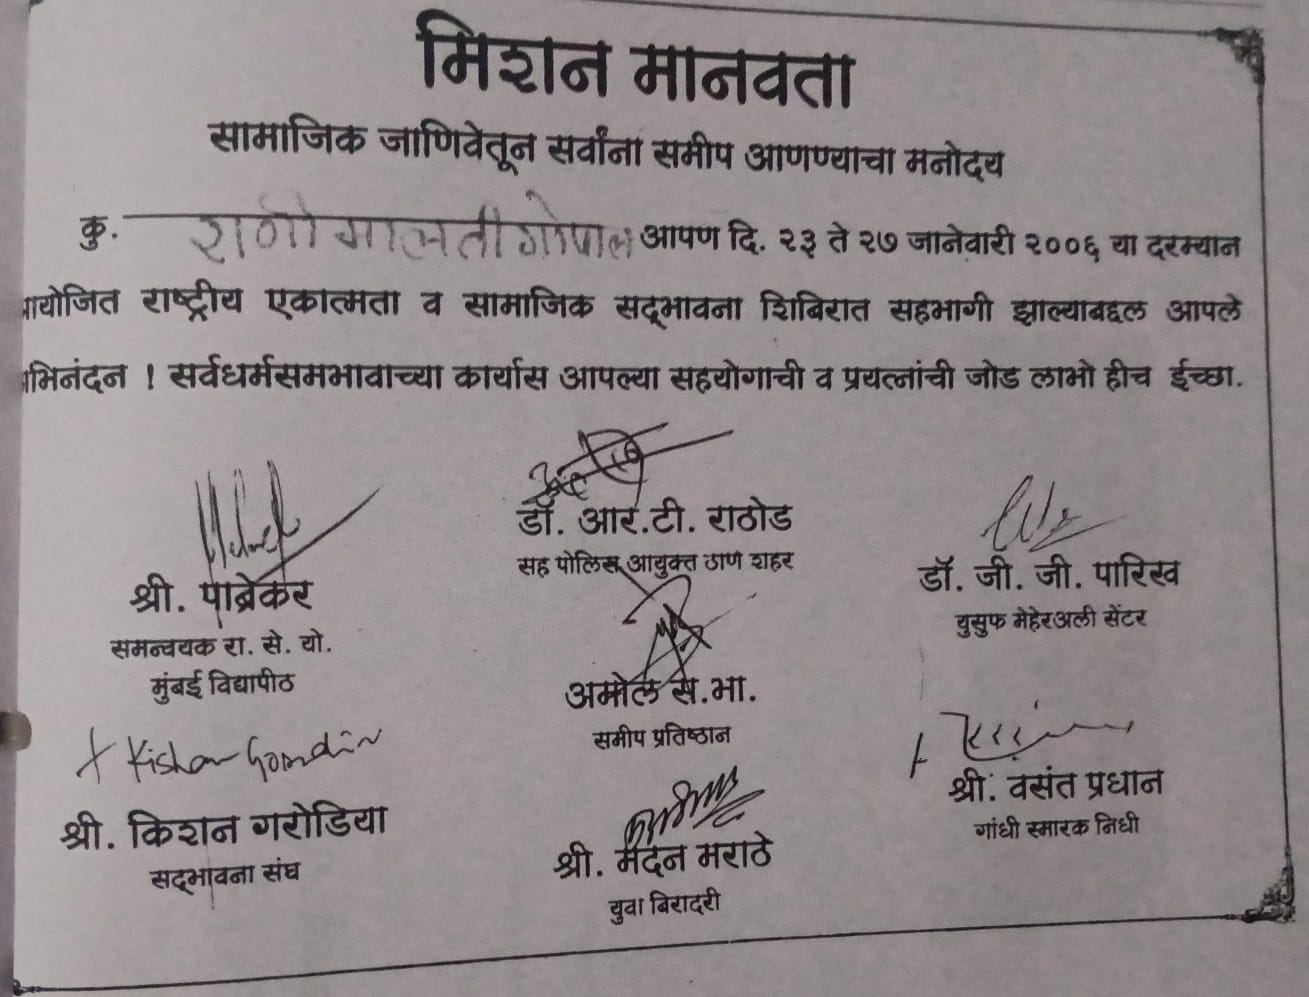 मिशन मानवता
सामाजिक जाणिवेतून सर्वांना समीप आणण्याचा मनोदय
कु. राणी मालती गोपाल आपण दि. २३ ते २७ जानेवारी २००६ या दरम्यान
ायोजित राष्ट्रीय एकात्मता व सामाजिक सद्‌भावना शिबिरात सहभागी झाल्याबद्दल आपले
भिनंदन ! सर्वधर्मसमभावाच्या कार्यास आपल्या सहयोगाची व प्रयत्नांची जोड लाभो हीच ईच्छा.
डॉ. आर.टी. राठोड
सह पोलिस आयुक्त ठाणे शहर
श्री. पाब्रेकर
समन्वयक रा. से. यो.
मुंबई विद्यापीठ
डॉ. जी. जी. पारिख
युसुफ मेहेरअली सेंटर
अमोल स.भा.
समीप प्रतिष्ठान
Kishan
श्री. किशन गरोडिया
सद्‌भावना संघ
श्री. मदन मराठे
युवा बिरादरी
श्री. वसंत प्रधान
गांधी स्मारक निधी